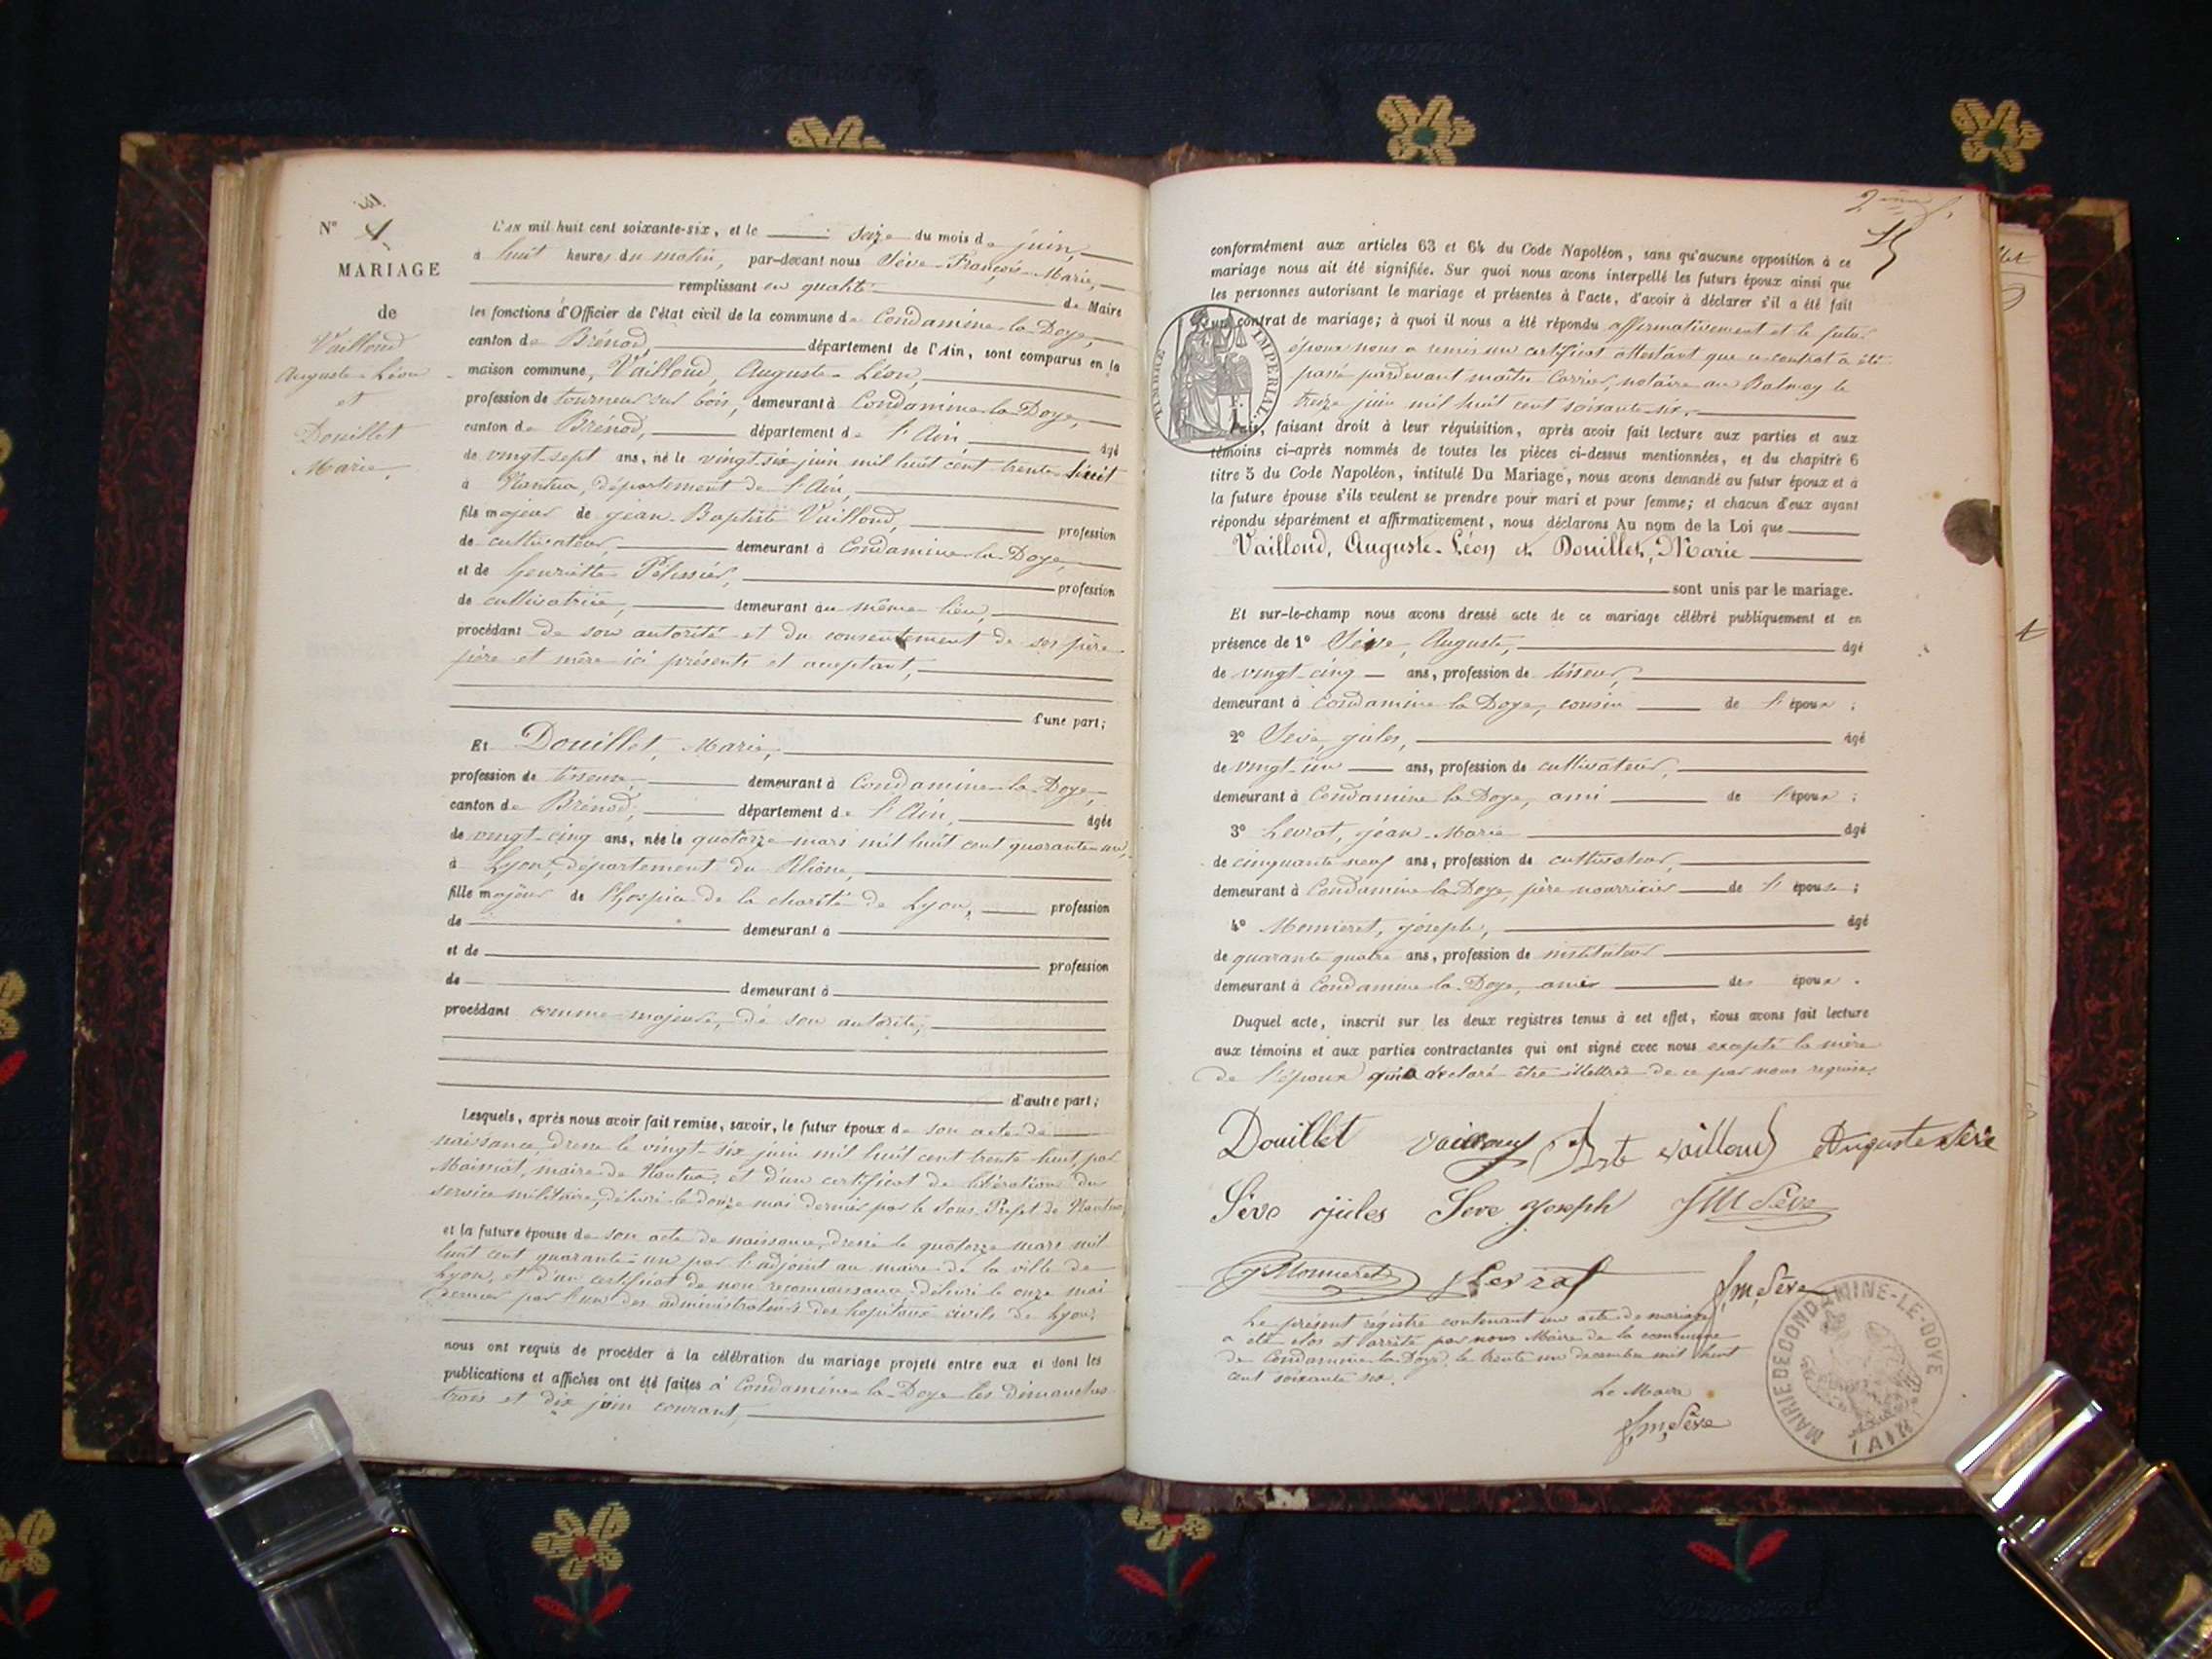 Nº 1
MARIAGE
de
Vailloud
Auguste-Léon
et
Douillet
Marie
L'AN mil huit cent soixante-six, et le seize du mois de juin,
à huit heures du matin, par-devant nous Sève François-Marie,
remplissant en qualité de Maire
les fonctions d'Officier de l'état civil de la commune de Condamine-la-Doye,
canton de Brénod, département de l'Ain, sont comparus en la
maison commune, Vailloud, Auguste-Léon,
profession de tourneur sur bois, demeurant à Condamine-la-Doye,
canton de Brénod, département de l'Ain âgé
de vingt-sept ans, né le vingt-six juin mil huit cent trente-huit
à Nantua, département de l'Ain,
fils majeur de jean-Baptiste Vailloud, profession
de cultivateur, demeurant à Condamine-la-Doye,
et de henriette Pélissier, profession
de cultivatrice, demeurant au même lieu,
procédant de son autorité et du consentement de ses père
père et mère ici présents et acceptant,
d'une part;
Et Douillet, Marie,
profession de tisseuse, demeurant à Condamine-la-Doye,
canton de Brénod, département de l'Ain, âgée
de vingt-cinq ans, née le quatorze mars mil huit cent quarante-un,
à Lyon, département du Rhône,
fille majeur de l'hospice de la charité de Lyon, profession
de demeurant à
et de profession
de demeurant à
procédant comme majeure, de son autorité,
d'autre part;
Lesquels, après nous avoir fait remise, savoir, le futur époux de son acte de
naissance, dressé le vingt-six juin mil huit cent trente huit, par
maire de Nantua, et d'un certificat de libération du
service militaire, délivré le douze mai dernier par le Sous-Préfet de Nantua,
et la future épouse de son acte de naissance, dressé le quatorze mars mil
huit cent quarante-un par l'adjoint au maire de la ville de
Lyon, et d'un certificat de non reconnaissance délivré le onze mai
dernier par l'un des administrateurs des hopitaux civils de Lyon,
nous ont requis de procéder à la célébration du mariage projeté entre eux et dont les
publications et affiches ont été faites à Condamine-la-Doye les dimanches
trois et dix juin courant,
2ème
15
conformément aux articles 63 et 64 du Code Napoléon, sans qu'aucune opposition à ce
mariage nous ait été signifiée. Sur quoi nous avons interpellé les futurs époux ainsi que
les personnes autorisant le mariage et présentes à l'acte, d'avoir à déclarer s'il a été fait
un contrat de mariage; à quoi il nous a été répondu affirmativement et le futur
époux nous a remis un certificat attestant que ce contrat a été
passé pardevant maître Carrier, notaire au Balmay le
treize juin mil huit cent soixante-six.
TIMBRE IMPERIAL
Puis, faisant droit à leur réquisition, après avoir fait lecture aux parties et aux
témoins ci-après nommés de toutes les pièces ci-dessus mentionnées, et du chapitre 6
titre 5 du Code Napoléon, intitulé Du Mariage, nous avons demandé au futur époux et à
la future épouse s'ils veulent se prendre pour mari et pour femme; et chacun d'eux ayant
répondu séparément et affirmativement, nous déclarons Au nom de la Loi que
Vailloud, Auguste-Léon et Douillet, Marie
sont unis par le mariage.
Et sur-le-champ nous avons dressé acte de ce mariage célébré publiquement et en
présence de 1º Sève, Auguste, âgé
de vingt-cinq ans, profession de tisseur,
demeurant à Condamine la Doye, cousin de l'époux;
2º Sève, jules, âgé
de vingt-un ans, profession de cultivateur,
demeurant à Condamine la Doye, ami de l'époux;
3º Levrat, jean-Marie âgé
de cinquante neuf ans, profession de cultivateur,
demeurant à Condamine la Doye, père nourricier de l'épouse;
4º Monneret, joseph, âgé
de quarante quatre ans, profession de instituteur
demeurant à Condamine-la-Doye, ami des époux.
Duquel acte, inscrit sur les deux registres tenus à cet effet, nous avons fait lecture
aux témoins et aux parties contractantes qui ont signé avec nous excepté la mère
de l'époux qui a déclaré être illettrée de ce par nous requise.
Douillet Vailloud Bte Vailloud Auguste Sève
Sève jules Seve joseph JM Sève
J Monneret Levrat f,m,Sève
Le présent régistre contenant un acte de mariage
a été clos et arrêté par nous Maire de la commune
de Condamine-la-Doye, le trente un décembre mil huit
cent soixante six.
Le Maire
f,m,Sève
MAIRIE DE CONDAMINE-LE-DOYE
(AIN)